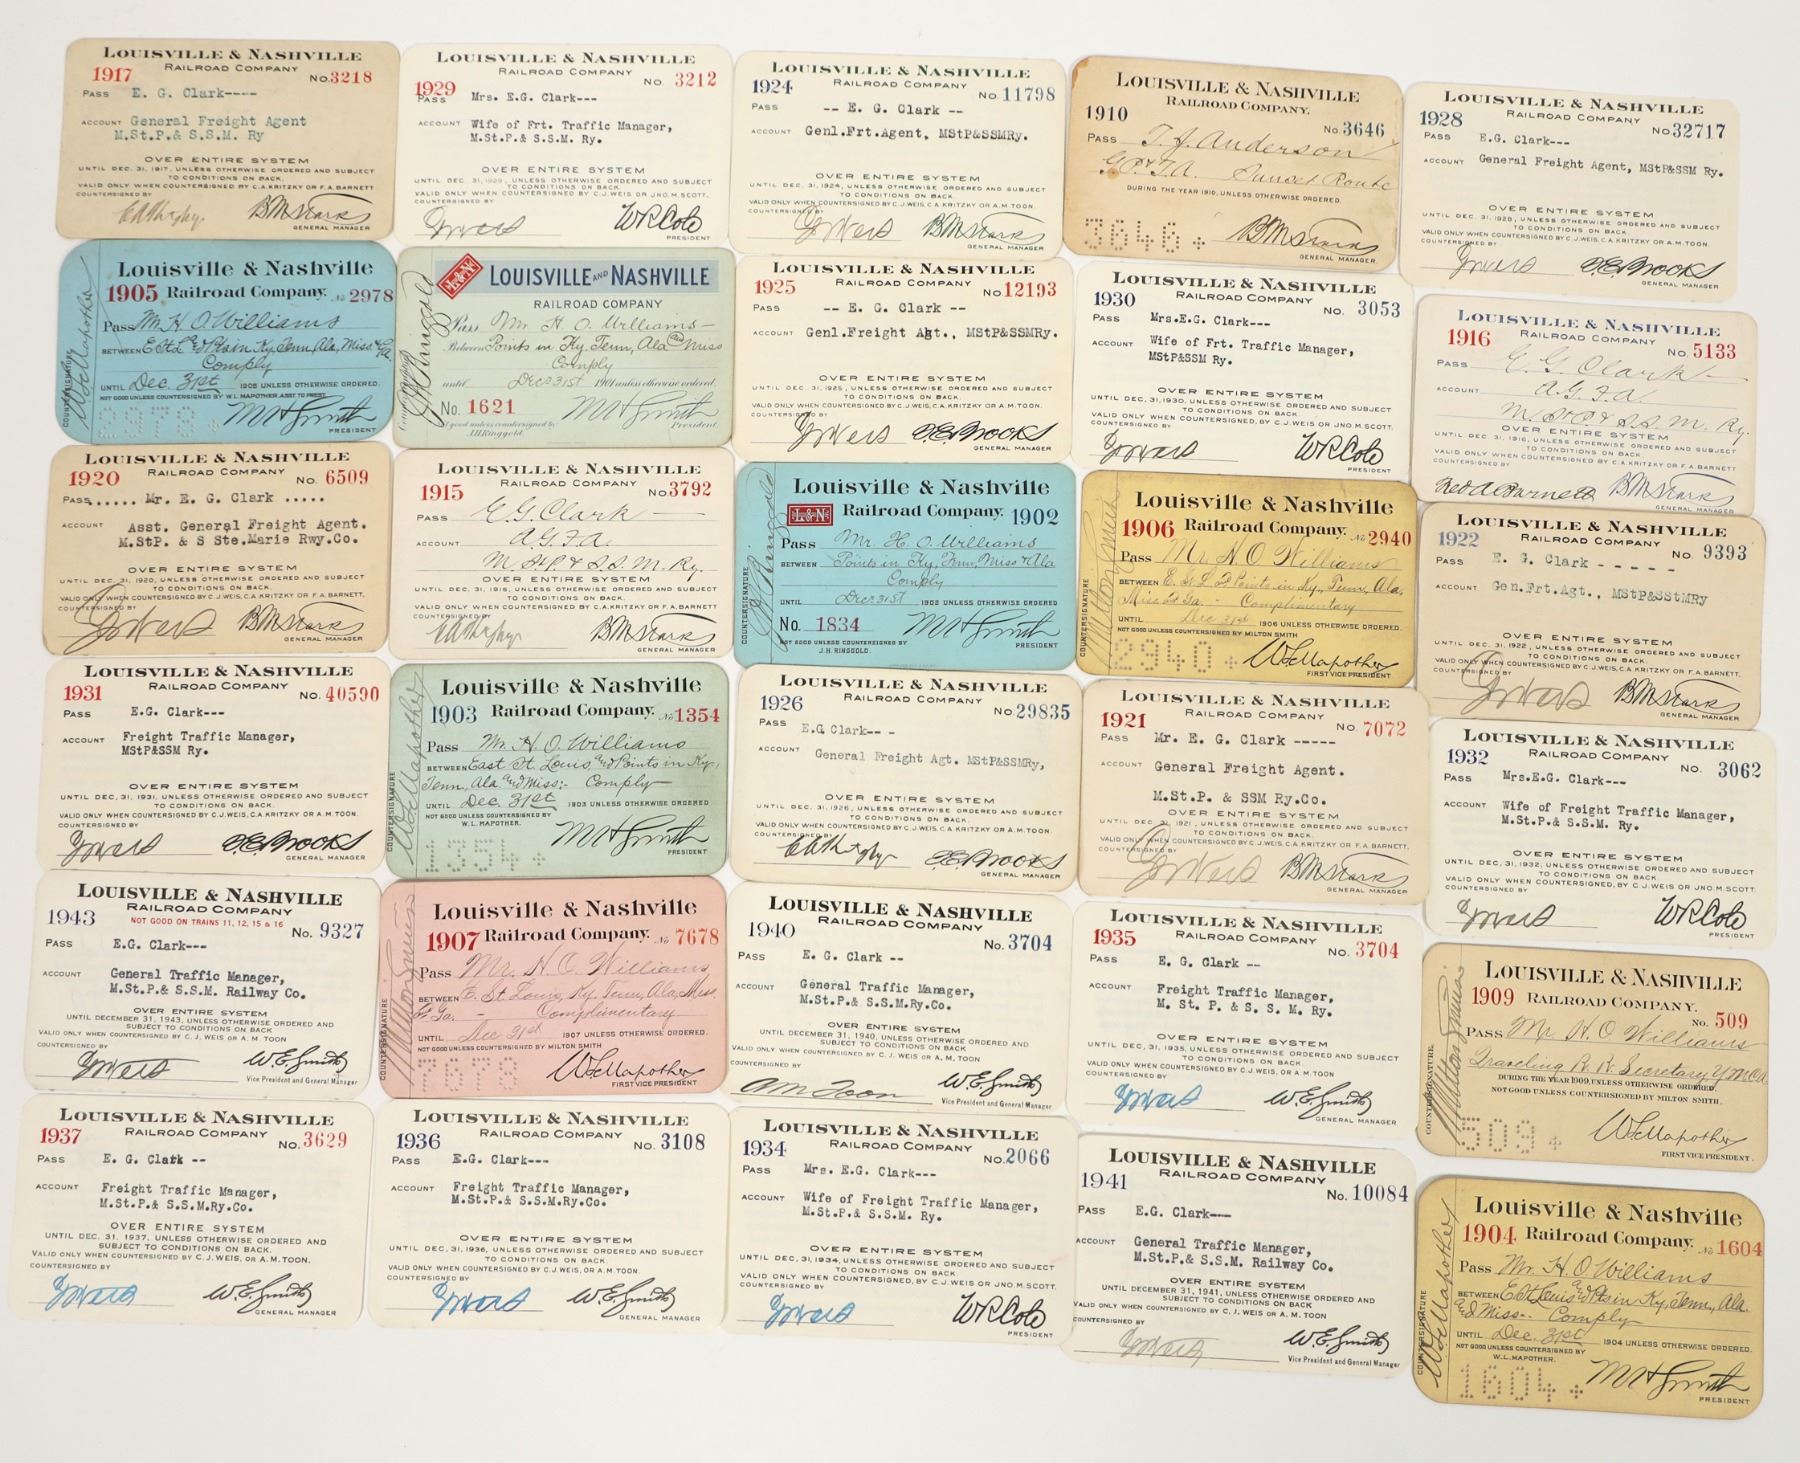 LOUISVILLE & NASHVILLE
RAILROAD COMPANY
1917 No. 3218
PASS E. G. Clark----
ACCOUNT General Freight Agent
M.St.P.& S.S.M. Ry
OVER ENTIRE SYSTEM
UNTIL DEC. 31, 1917, UNLESS OTHERWISE ORDERED AND SUBJECT
TO CONDITIONS ON BACK.
VALID ONLY WHEN COUNTERSIGNED BY C.A.KRITZKY OR F.A.BARNETT
COUNTERSIGNED BY
GENERAL MANAGER
LOUISVILLE & NASHVILLE
RAILROAD COMPANY
1929 No. 3212
PASS Mrs. E.G. Clark---
ACCOUNT Wife of Frt. Traffic Manager,
M.St.P.& S.S.M. Ry.
OVER ENTIRE SYSTEM
UNTIL DEC. 31, 1929, UNLESS OTHERWISE ORDERED AND SUBJECT
TO CONDITIONS ON BACK.
VALID ONLY WHEN COUNTERSIGNED BY C.J.WEIS OR JNO.M.SCOTT.
COUNTERSIGNED BY
WRCole
PRESIDENT
LOUISVILLE & NASHVILLE
RAILROAD COMPANY
1924 No. 11798
PASS -- E. G. Clark --
ACCOUNT Genl.Frt.Agent, MStP&SSMRy.
OVER ENTIRE SYSTEM
UNTIL DEC. 31, 1924, UNLESS OTHERWISE ORDERED AND SUBJECT
TO CONDITIONS ON BACK.
VALID ONLY WHEN COUNTERSIGNED BY C.J.WEIS, C.A.KRITZKY OR A.M.TOON.
COUNTERSIGNED BY
GENERAL MANAGER
LOUISVILLE & NASHVILLE
RAILROAD COMPANY.
1910 No. 3646
PASS T. J. Anderson
G.P.&T.A. Sunset Route
DURING THE YEAR 1910, UNLESS OTHERWISE ORDERED.
3646+
GENERAL MANAGER.
LOUISVILLE & NASHVILLE
RAILROAD COMPANY
1928 No. 32717
PASS E.G. Clark---
ACCOUNT General Freight Agent, MStP&SSM Ry.
OVER ENTIRE SYSTEM
UNTIL DEC. 31, 1928, UNLESS OTHERWISE ORDERED AND SUBJECT
TO CONDITIONS ON BACK.
VALID ONLY WHEN COUNTERSIGNED BY C.J.WEIS, C.A.KRITZKY OR A.M.TOON.
COUNTERSIGNED BY
GENERAL MANAGER
Louisville & Nashville
1905 Railroad Company. No 2978
Pass Mr. H. O. Williams
BETWEEN E St L & Pts in Ky, Tenn, Ala, Miss & Ga
Comply
UNTIL Dec. 31st 1905 UNLESS OTHERWISE ORDERED.
NOT GOOD UNLESS COUNTERSIGNED BY W.L. MAPOTHER, ASST TO PREST.
2978+ M H Smith
PRESIDENT
COUNTERSIGNATURE W L Mapother
L&N LOUISVILLE AND NASHVILLE
RAILROAD COMPANY
Pass Mr. H. O. Williams
Between Points in Ky, Tenn, Ala and Miss
Comply
until Dec 31st 1901 unless otherwise ordered.
No. 1621 M H Smith
President.
Not good unless countersigned by
J.H.Ringgold.
LOUISVILLE & NASHVILLE
RAILROAD COMPANY
1925 No. 12193
PASS -- E. G. Clark --
ACCOUNT Genl.Freight Agt., MStP&SSMRy.
OVER ENTIRE SYSTEM
UNTIL DEC. 31, 1925, UNLESS OTHERWISE ORDERED AND SUBJECT
TO CONDITIONS ON BACK.
VALID ONLY WHEN COUNTERSIGNED BY C.J.WEIS, C.A.KRITZKY OR A.M.TOON.
COUNTERSIGNED BY
GENERAL MANAGER
LOUISVILLE & NASHVILLE
RAILROAD COMPANY
1930 No. 3053
PASS Mrs.E.G. Clark---
ACCOUNT Wife of Frt. Traffic Manager,
MStP&SSM Ry.
OVER ENTIRE SYSTEM
UNTIL DEC. 31, 1930, UNLESS OTHERWISE ORDERED AND SUBJECT
TO CONDITIONS ON BACK.
VALID ONLY WHEN COUNTERSIGNED BY C.J.WEIS OR JNO.M.SCOTT.
COUNTERSIGNED BY
WRCole
PRESIDENT
LOUISVILLE & NASHVILLE
RAILROAD COMPANY
1916 No. 5133
PASS E. G. Clark
ACCOUNT A.G.F.A.
M. St P. & S.S.M. Ry.
OVER ENTIRE SYSTEM
UNTIL DEC. 31, 1916, UNLESS OTHERWISE ORDERED AND SUBJECT
TO CONDITIONS ON BACK.
VALID ONLY WHEN COUNTERSIGNED BY C.A.KRITZKY OR F.A.BARNETT
COUNTERSIGNED BY
GENERAL MANAGER
LOUISVILLE & NASHVILLE
RAILROAD COMPANY
1920 No. 6509
PASS...... Mr. E. G. Clark .....
ACCOUNT Asst. General Freight Agent.
M.StP. & S Ste.Marie Rwy.Co.
OVER ENTIRE SYSTEM
UNTIL DEC. 31, 1920, UNLESS OTHERWISE ORDERED AND SUBJECT
TO CONDITIONS ON BACK.
VALID ONLY WHEN COUNTERSIGNED BY C.J.WEIS, C.A.KRITZKY OR F.A.BARNETT,
COUNTERSIGNED BY
GENERAL MANAGER
LOUISVILLE & NASHVILLE
RAILROAD COMPANY
1915 No. 3792
PASS E. G. Clark
ACCOUNT A.G.F.A.
M. St P. & S.S.M. Ry.
OVER ENTIRE SYSTEM
UNTIL DEC. 31, 1915, UNLESS OTHERWISE ORDERED AND SUBJECT
TO CONDITIONS ON BACK.
VALID ONLY WHEN COUNTERSIGNED BY C.A.KRITZKY OR F.A.BARNETT.
COUNTERSIGNED BY
GENERAL MANAGER
Louisville & Nashville
L&N Railroad Company. 1902
Pass Mr. H. O. Williams
BETWEEN Points in Ky, Tenn, Miss & Ala
Comply
UNTIL Dec 31st 1902 UNLESS OTHERWISE ORDERED
No. 1834 M H Smith
NOT GOOD UNLESS COUNTERSIGNED BY PRESIDENT
J.H. RINGGOLD.
COUNTERSIGNATURE
Louisville & Nashville
1906 Railroad Company. No 2940
Pass Mr. H. O. Williams
BETWEEN E. St. L & Points in Ky, Tenn, Ala,
Miss & Ga. - Complimentary
UNTIL Dec 31st 1906 UNLESS OTHERWISE ORDERED.
NOT GOOD UNLESS COUNTERSIGNED BY MILTON SMITH
2940+ W L Mapother
FIRST VICE PRESIDENT
COUNTERSIGNATURE Milton Smith
LOUISVILLE & NASHVILLE
RAILROAD COMPANY
1922 No. 9393
PASS E. G. Clark - - - - -
ACCOUNT Gen.Frt.Agt., MStP&SStMRy
OVER ENTIRE SYSTEM
UNTIL DEC. 31, 1922, UNLESS OTHERWISE ORDERED AND SUBJECT
TO CONDITIONS ON BACK.
VALID ONLY WHEN COUNTERSIGNED BY C.J.WEIS, C.A.KRITZKY OR F.A.BARNETT.
COUNTERSIGNED BY
GENERAL MANAGER
LOUISVILLE & NASHVILLE
RAILROAD COMPANY
1931 No. 40590
PASS E.G. Clark---
ACCOUNT Freight Traffic Manager,
MStP&SSM Ry.
OVER ENTIRE SYSTEM
UNTIL DEC. 31, 1931, UNLESS OTHERWISE ORDERED AND SUBJECT
TO CONDITIONS ON BACK.
VALID ONLY WHEN COUNTERSIGNED BY C.J.WEIS, C.A.KRITZKY OR A.M.TOON.
COUNTERSIGNED BY
GENERAL MANAGER
Louisville & Nashville
1903 Railroad Company. No 1354
Pass Mr. H. O. Williams
BETWEEN East St. Louis and Points in Ky,
Tenn, Ala and Miss:- Comply
UNTIL Dec. 31st 1903 UNLESS OTHERWISE ORDERED
NOT GOOD UNLESS COUNTERSIGNED BY
W.L. MAPOTHER.
1354+ M H Smith
PRESIDENT
COUNTERSIGNATURE W L Mapother
LOUISVILLE & NASHVILLE
RAILROAD COMPANY
1926 No. 29835
PASS E.G Clark-- -
ACCOUNT General Freight Agt. MStP&SSMRy,
OVER ENTIRE SYSTEM
UNTIL DEC. 31, 1926, UNLESS OTHERWISE ORDERED AND SUBJECT
TO CONDITIONS ON BACK.
VALID ONLY WHEN COUNTERSIGNED BY C.J.WEIS, C.A.KRITZKY OR A.M.TOON.
COUNTERSIGNED BY
GENERAL MANAGER
LOUISVILLE & NASHVILLE
RAILROAD COMPANY
1921 No. 7072
PASS Mr. E. G. Clark -----
ACCOUNT General Freight Agent.
M.St.P. & SSM Ry.Co.
OVER ENTIRE SYSTEM
UNTIL DEC. 31, 1921, UNLESS OTHERWISE ORDERED AND SUBJECT
TO CONDITIONS ON BACK.
VALID ONLY WHEN COUNTERSIGNED BY C.J.WEIS, C.A.KRITZKY OR F.A.BARNETT,
COUNTERSIGNED BY
GENERAL MANAGER
LOUISVILLE & NASHVILLE
RAILROAD COMPANY
1932 No. 3062
PASS Mrs.E.G. Clark---
ACCOUNT Wife of Freight Traffic Manager,
M.St.P.& S.S.M. Ry.
OVER ENTIRE SYSTEM
UNTIL DEC. 31, 1932, UNLESS OTHERWISE ORDERED AND SUBJECT
TO CONDITIONS ON BACK.
VALID ONLY WHEN COUNTERSIGNED BY C.J.WEIS OR JNO.M.SCOTT.
COUNTERSIGNED BY
WRCole
PRESIDENT
LOUISVILLE & NASHVILLE
RAILROAD COMPANY
1943 NOT GOOD ON TRAINS 11, 12, 15 & 16 No. 9327
PASS E.G. Clark---
ACCOUNT General Traffic Manager,
M.St.P.& S.S.M. Railway Co.
OVER ENTIRE SYSTEM
UNTIL DECEMBER 31, 1943, UNLESS OTHERWISE ORDERED AND
SUBJECT TO CONDITIONS ON BACK
VALID ONLY WHEN COUNTERSIGNED BY C. J. WEIS OR A. M. TOON
COUNTERSIGNED BY
W.E.Smith
Vice President and General Manager
Louisville & Nashville
1907 Railroad Company. No 7678
Pass Mr. H. O. Williams
BETWEEN E. St Louis, Ky. Tenn, Ala, Miss.
& Ga. - Complimentary
UNTIL Dec 31st 1907 UNLESS OTHERWISE ORDERED.
NOT GOOD UNLESS COUNTERSIGNED BY MILTON SMITH
7678 W L Mapother
FIRST VICE PRESIDENT
COUNTERSIGNATURE Milton Smith
LOUISVILLE & NASHVILLE
RAILROAD COMPANY
1940 No. 3704
PASS E. G. Clark --
ACCOUNT General Traffic Manager,
M.St.P.& S.S.M.Ry.Co.
OVER ENTIRE SYSTEM
UNTIL DECEMBER 31, 1940, UNLESS OTHERWISE ORDERED AND
SUBJECT TO CONDITIONS ON BACK
VALID ONLY WHEN COUNTERSIGNED BY C. J. WEIS OR A. M. TOON
COUNTERSIGNED BY
Am Toon W.E.Smith
Vice President and General Manager
LOUISVILLE & NASHVILLE
RAILROAD COMPANY
1935 No. 3704
PASS E. G. Clark --
ACCOUNT Freight Traffic Manager,
M. St. P. & S. S. M. Ry.
OVER ENTIRE SYSTEM
UNTIL DEC. 31, 1935, UNLESS OTHERWISE ORDERED AND SUBJECT
TO CONDITIONS ON BACK.
VALID ONLY WHEN COUNTERSIGNED BY C.J.WEIS, OR A. M. TOON.
COUNTERSIGNED BY
W.E.Smith
GENERAL MANAGER
LOUISVILLE & NASHVILLE
1909 RAILROAD COMPANY.
No. 509
PASS Mr. H. O. Williams
Traveling R. R. Secretary YMCA
DURING THE YEAR 1909, UNLESS OTHERWISE ORDERED.
NOT GOOD UNLESS COUNTERSIGNED BY MILTON SMITH.
509+ W L Mapother
FIRST VICE PRESIDENT.
COUNTERSIGNATURE. Milton Smith
LOUISVILLE & NASHVILLE
RAILROAD COMPANY
1937 No. 3629
PASS E. G. Clark --
ACCOUNT Freight Traffic Manager,
M.St.P.& S.S.M.Ry.Co.
OVER ENTIRE SYSTEM
UNTIL DEC. 31, 1937, UNLESS OTHERWISE ORDERED AND
SUBJECT TO CONDITIONS ON BACK.
VALID ONLY WHEN COUNTERSIGNED BY C. J. WEIS, OR A. M. TOON.
COUNTERSIGNED BY
W.E.Smith
GENERAL MANAGER
LOUISVILLE & NASHVILLE
RAILROAD COMPANY
1936 No. 3108
PASS E.G. Clark---
ACCOUNT Freight Traffic Manager,
M.St.P.& S.S.M.Ry.Co.
OVER ENTIRE SYSTEM
UNTIL DEC. 31, 1936, UNLESS OTHERWISE ORDERED AND SUBJECT
TO CONDITIONS ON BACK.
VALID ONLY WHEN COUNTERSIGNED BY C.J.WEIS, OR A. M. TOON.
COUNTERSIGNED BY
W.E.Smith
GENERAL MANAGER
LOUISVILLE & NASHVILLE
RAILROAD COMPANY
1934 No. 2066
PASS Mrs. E.G. Clark---
ACCOUNT Wife of Freight Traffic Manager,
M.St.P.& S.S.M. Ry.
OVER ENTIRE SYSTEM
UNTIL DEC. 31, 1934, UNLESS OTHERWISE ORDERED AND SUBJECT
TO CONDITIONS ON BACK.
VALID ONLY WHEN COUNTERSIGNED BY C.J.WEIS OR JNO.M.SCOTT.
COUNTERSIGNED BY
WRCole
PRESIDENT
LOUISVILLE & NASHVILLE
RAILROAD COMPANY
1941 No. 10084
PASS E.G. Clark---
ACCOUNT General Traffic Manager,
M.St.P.& S.S.M. Railway Co.
OVER ENTIRE SYSTEM
UNTIL DECEMBER 31, 1941, UNLESS OTHERWISE ORDERED AND
SUBJECT TO CONDITIONS ON BACK
VALID ONLY WHEN COUNTERSIGNED BY C. J. WEIS OR A. M. TOON
COUNTERSIGNED BY
W.E.Smith
Vice President and General Manager
Louisville & Nashville
1904 Railroad Company. No 1604
Pass Mr. H. O. Williams
BETWEEN E St Louis and Pts in Ky, Tenn, Ala.
and Miss- Comply
UNTIL Dec. 31st 1904 UNLESS OTHERWISE ORDERED.
NOT GOOD UNLESS COUNTERSIGNED BY
W.L. MAPOTHER.
1604+ M H Smith
PRESIDENT
COUNTERSIGNATURE W L Mapother